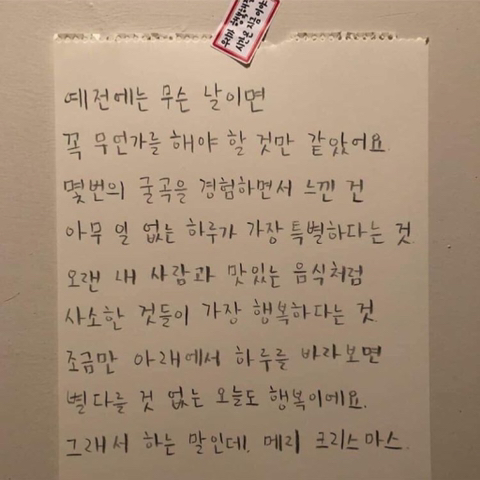 우리가 행복해질
시간은 지금 이야
예전에는 무슨 날이면
꼭 무언가를 해야 할 것만 같았어요.
몇번의 굴곡을 경험하면서 느낀 건
아무 일 없는 하루가 가장 특별하다는 것.
오랜 내 사람과 맛있는 음식처럼
사소한 것들이 가장 행복하다는 것.
조금만 아래에서 하루를 바라보면
별다를 것 없는 오늘도 행복이에요.
그래서 하는 말인데, 메리 크리스마스.